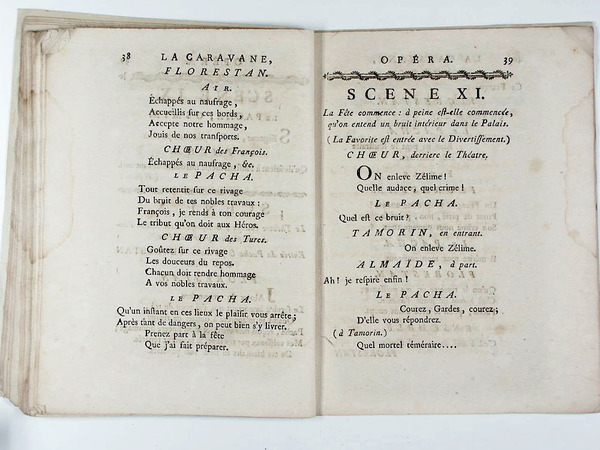 38 LA CARAVANE,
FLORESTAN.
AIR.
Échappés au naufrage,
Accueillis sur ces bords,
Accepte notre hommage,
Jouis de nos transports.
CHŒUR des François.
Échappés au naufrage, &c.
LE PACHA.
Tout retentit sur ce rivage
Du bruit de tes nobles travaux :
François, je rends à ton courage
Le tribut qu'on doit aux Héros.
CHŒUR des Turcs.
Goûtez sur ce rivage
Les douceurs du repos.
Chacun doit rendre hommage
A vos nobles travaux.
LE PACHA.
Qu'un instant en ces lieux le plaisir vous arrête;
Après tant de dangers, on peut bien s'y livrer.
Prenez part à la fête
Que j'ai fait préparer.
OPÉRA. 39
SCENE XI.
La Fête commence : à peine est-elle commencée,
qu'on entend un bruit intérieur dans le Palais.
(La Favorite est entrée avec le Divertissement.)
CHŒUR, derriere le Théatre.
ON enleve Zélime !
Quelle audace, quel crime !
LE PACHA.
Quel est ce bruit ?
TAMORIN, en entrant.
On enleve Zélime.
ALMAÏDE, à part.
Ah ! je respire enfin !
LE PACHA.
Courez, Gardes, courez;
D'elle vous répondrez.
(à Tamorin.)
Quel mortel téméraire....